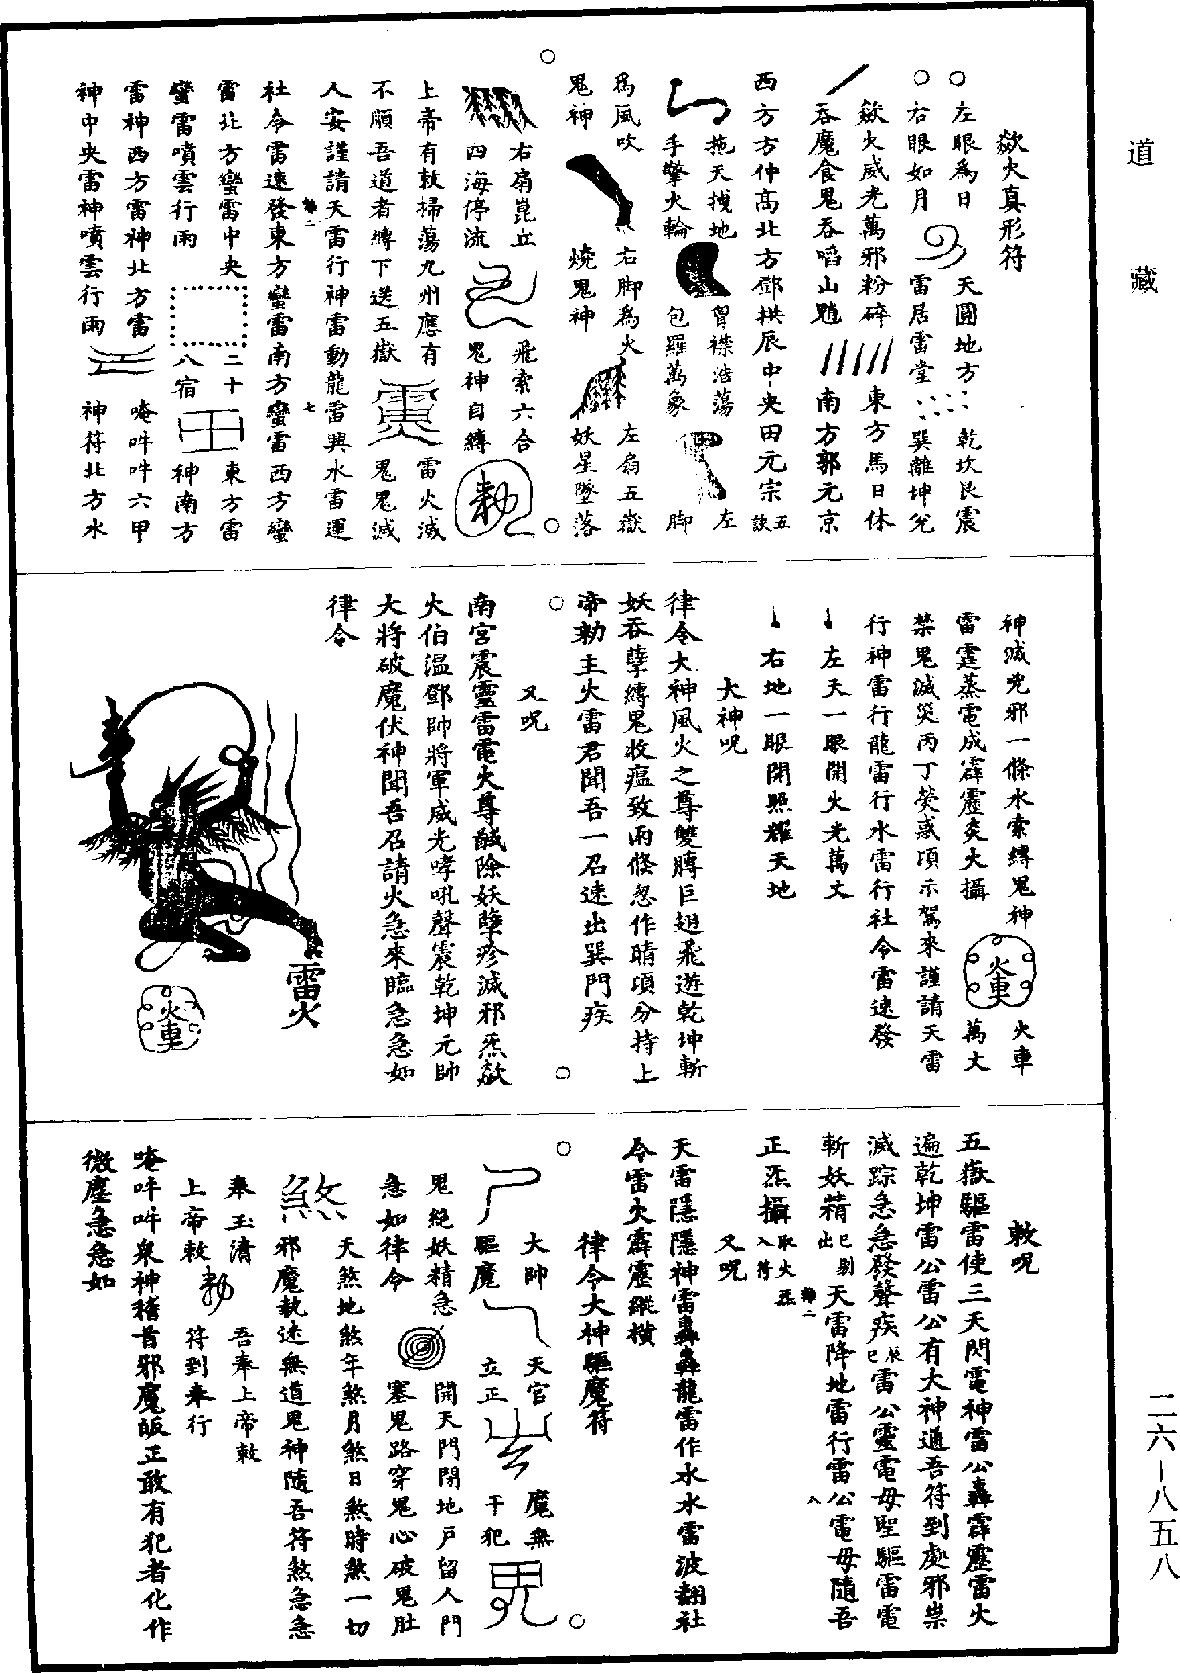 道藏
欻火真形符
○左眼為日　天圓地方　乾坎艮震
○右眼如月　雷居雷堂　巽離坤兌
欻火威光萬邪粉碎　東方馬日休
吞魔食鬼吞啗山魈　南方郭元京
西方方仲高北方鄧拱辰中央田元宗五
訣
拖天拽地　胷襟浩蕩　左
手擎火輪　包羅萬象　脚
為風吹　右脚為火　左扇五嶽
鬼神　燒鬼神　妖星墜落
右扇崑丘　飛索六合
四海停流　鬼神自縛　勑
上帝有敕掃蕩九州應有　雷火滅
不順吾道者縛下送五嶽　鬼鬼滅
人安謹請天雷行神雷動龍雷興水雷運
社令雷速發東方蠻雷南方蠻雷西方蠻
雷北方蠻雷中央　二十　東方雷
蠻雷噴雲行雨　八宿　神南方
雷神西方雷神北方雷　唵吽吽六甲
神中央雷神噴雲行雨　神符北方水
神滅兇邪一條水索縛鬼神　火車
雷霆蒸電成霹靂炎火攝　火車　萬丈
禁鬼滅災丙丁熒惑頃示駕來謹請天雷
行神雷行龍雷行水雷行社令雷速發
左天一眼開火光萬丈
右地一眼閉照耀天地
大神呪
律令大神風火之尊雙膊巨翅飛遊乾坤斬
妖吞孽縛鬼收瘟致雨倏忽作晴頃分持上
帝勑主火雷君聞吾一召速出巽門疾
又呪
南宮震靈雷電火尊馘除妖孽殄滅邪炁欻
火伯溫鄧帥將軍威光哮吼聲震乾坤元帥
大將破魔伏神聞吾召請火急來臨急急如
律令
雷火
火車
敕呪
五嶽驅雷使三天閃電神雷公轟霹靂雷火
遍乾坤雷公雷公有大神通吾符到處邪祟
滅踪急急發聲疾辰巳雷公靈電母聖驅雷電
斬妖精巳剔出　天雷降地雷行雷公電母隨吾
正炁攝取火炁入符
又呪
天雷隱隱神雷轟轟龍雷作水水雷波翻社
令雷火霹靂縱橫
律令大神驅魔符
大帥　天官　魔無
驅魔　立正　干犯
鬼絕妖精急　開天門閉地戶留人門
急如律令　塞鬼路穿鬼心破鬼肚
天煞地煞年煞月煞日煞時煞一切
煞　邪魔執速無道鬼神隨吾符煞急急
奉玉清　吾奉上帝敕
上帝敕　勑　符到奉行
唵吽吽眾神稽首邪魔皈正敢有犯者化作
微塵急急如
二六—八五八